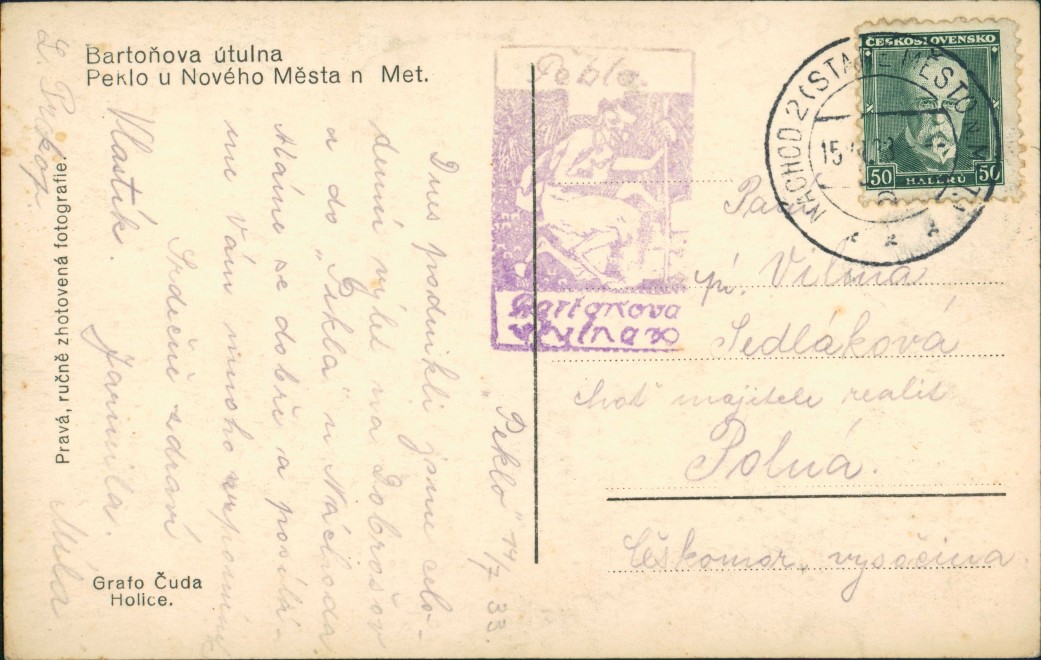 Bartoňova útulna
Peklo u Nového Města n Met.
Pravá, ručně zhotovená fotografie.
Grafo Čuda
Holice.
"Peklo" 14/7 33.
Dnes podnikli jsme celo-
denní výlet na Dobrošov
a do "Pekla" u Náchoda.
Máme se dobře a posílá-
me Vám mnoho
Srdečně zdraví
Vlastík. Jarmila.
L. Prokop
Míla
Peklo
Bartoňova
útulna
ČESKOSLOVENSKO
50 HALÉŘŮ 50
NÁCHOD 2 (STARÉ MĚSTO N. MET.)
Paí
pí. Vilma
Sedláková
choť majitele realit
Polná.
Českomor. vysočina